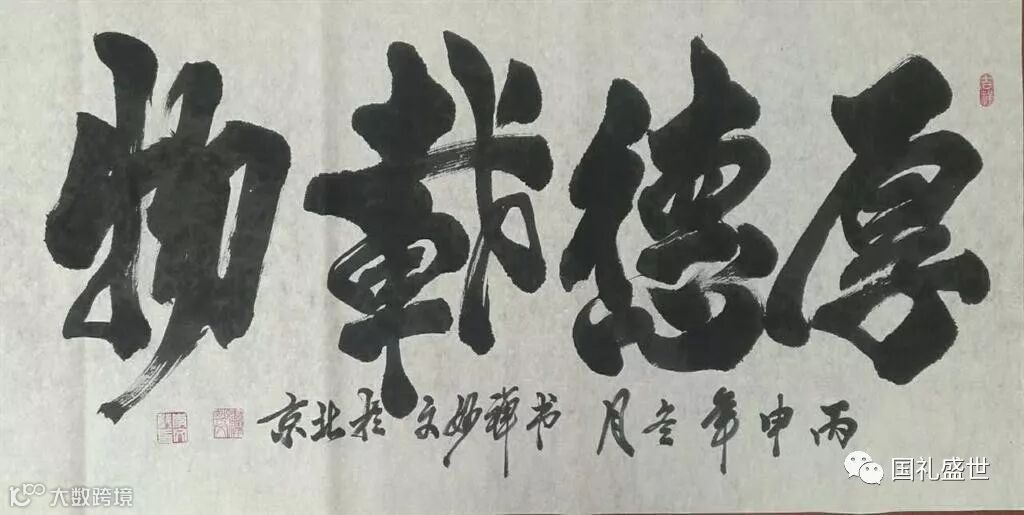 厚德載物
丙申年冬月 书 妙文於北京
国礼盛世
大数跨境